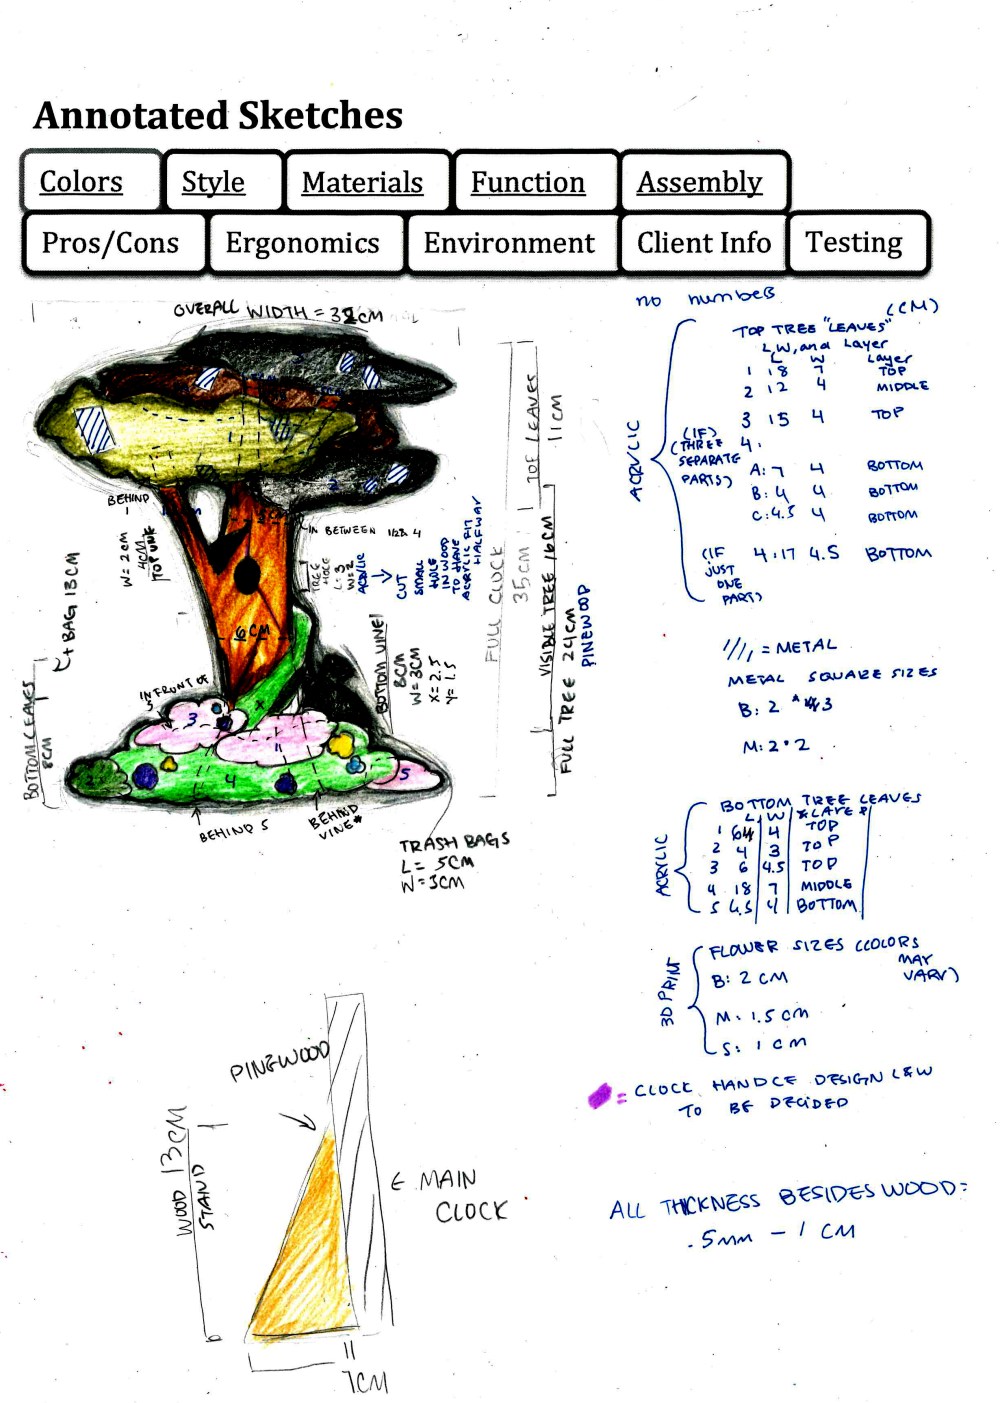 Annotated Sketches
Colors Style Materials Function Assembly
Pros/Cons Ergonomics Environment Client Info Testing
OVERALL WIDTH = 32CM
BEHIND
1
W = 2CM
4CM
TOP VINE
IN BETWEEN 1/2 & 4
TREE
HOLE
L: 3
W=2
ACRYLIC
CUT
SMALL
HOLE
IN WOOD
TO HAVE
ACRYLIC FIT
HALFWAY
6CM
+BAG 13CM
BOTTOM LEAVES
8CM
IN FRONT OF
5
BOTTOM VINE
8CM
W=3CM
X=2.5
Y=1.5
X
3
1
2
4
5
BEHIND 5
BEHIND
VINE*
TRASH BAGS
L= 5CM
W=3CM
FULL CLOCK
35CM
TOP LEAVES
11CM
VISIBLE TREE 16CM
FULL TREE 24CM
PINEWOOD
no numbers
(CM)
TOP TREE "LEAVES"
L, W, and Layer
L W Layer
1 18 7 TOP
2 12 4 MIDDLE
3 15 4 TOP
(IF)
(THREE
SEPARATE
PARTS)
4:
A: 7 4 BOTTOM
B: 4 4 BOTTOM
C: 4.5 4 BOTTOM
(IF
JUST
ONE
PART)
4: 17 4.5 BOTTOM
ACRYLIC
= METAL
METAL SQUARE SIZES
B: 2 * 3
M: 2*2
BOTTOM TREE LEAVES
L W LAYER
1 4 TOP
2 4 3 TOP
3 6 4.5 TOP
4 18 7 MIDDLE
5 4.5 4 BOTTOM
ACRYLIC
FLOWER SIZES (COLORS
MAY
VARY)
B: 2 CM
M: 1.5 CM
S: 1 CM
3D PRINT
= CLOCK HANDLE DESIGN L&W
TO BE DECIDED
ALL THICKNESS BESIDES WOOD:
.5mm - 1 CM
PINEWOOD
WOOD 13CM
STAND
MAIN
CLOCK
7CM